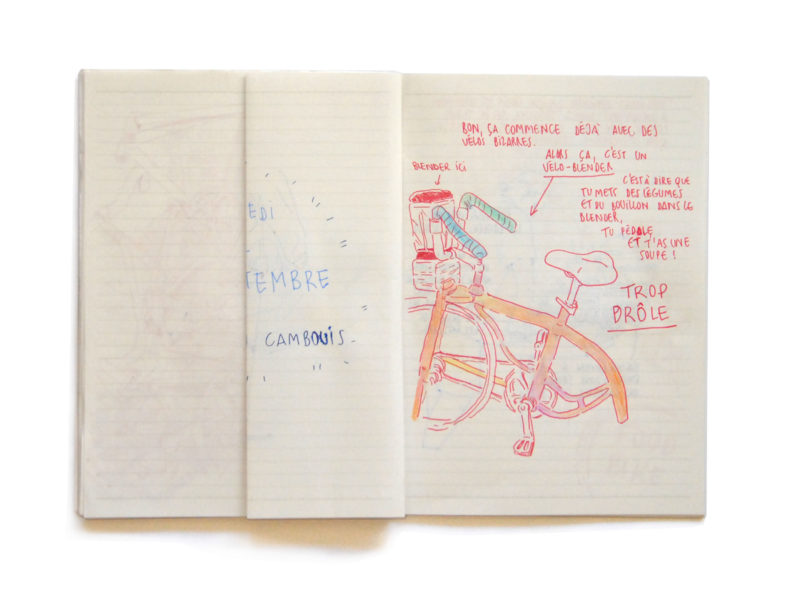 EDI
TEMBRE
CAMBOUIS-
BON, ÇA COMMENCE DÉJÀ AVEC DES
VÉLOS BIZARRES.
BLENDER ICI
ALORS ÇA, C'EST UN
VÉLO-BLENDER
C'EST À DIRE QUE
TU METS DES LÉGUMES
ET DU BOUILLON DANS LE
BLENDER,
TU PÉDALE
ET T'AS UNE
SOUPE !
TROP
BRÔLE